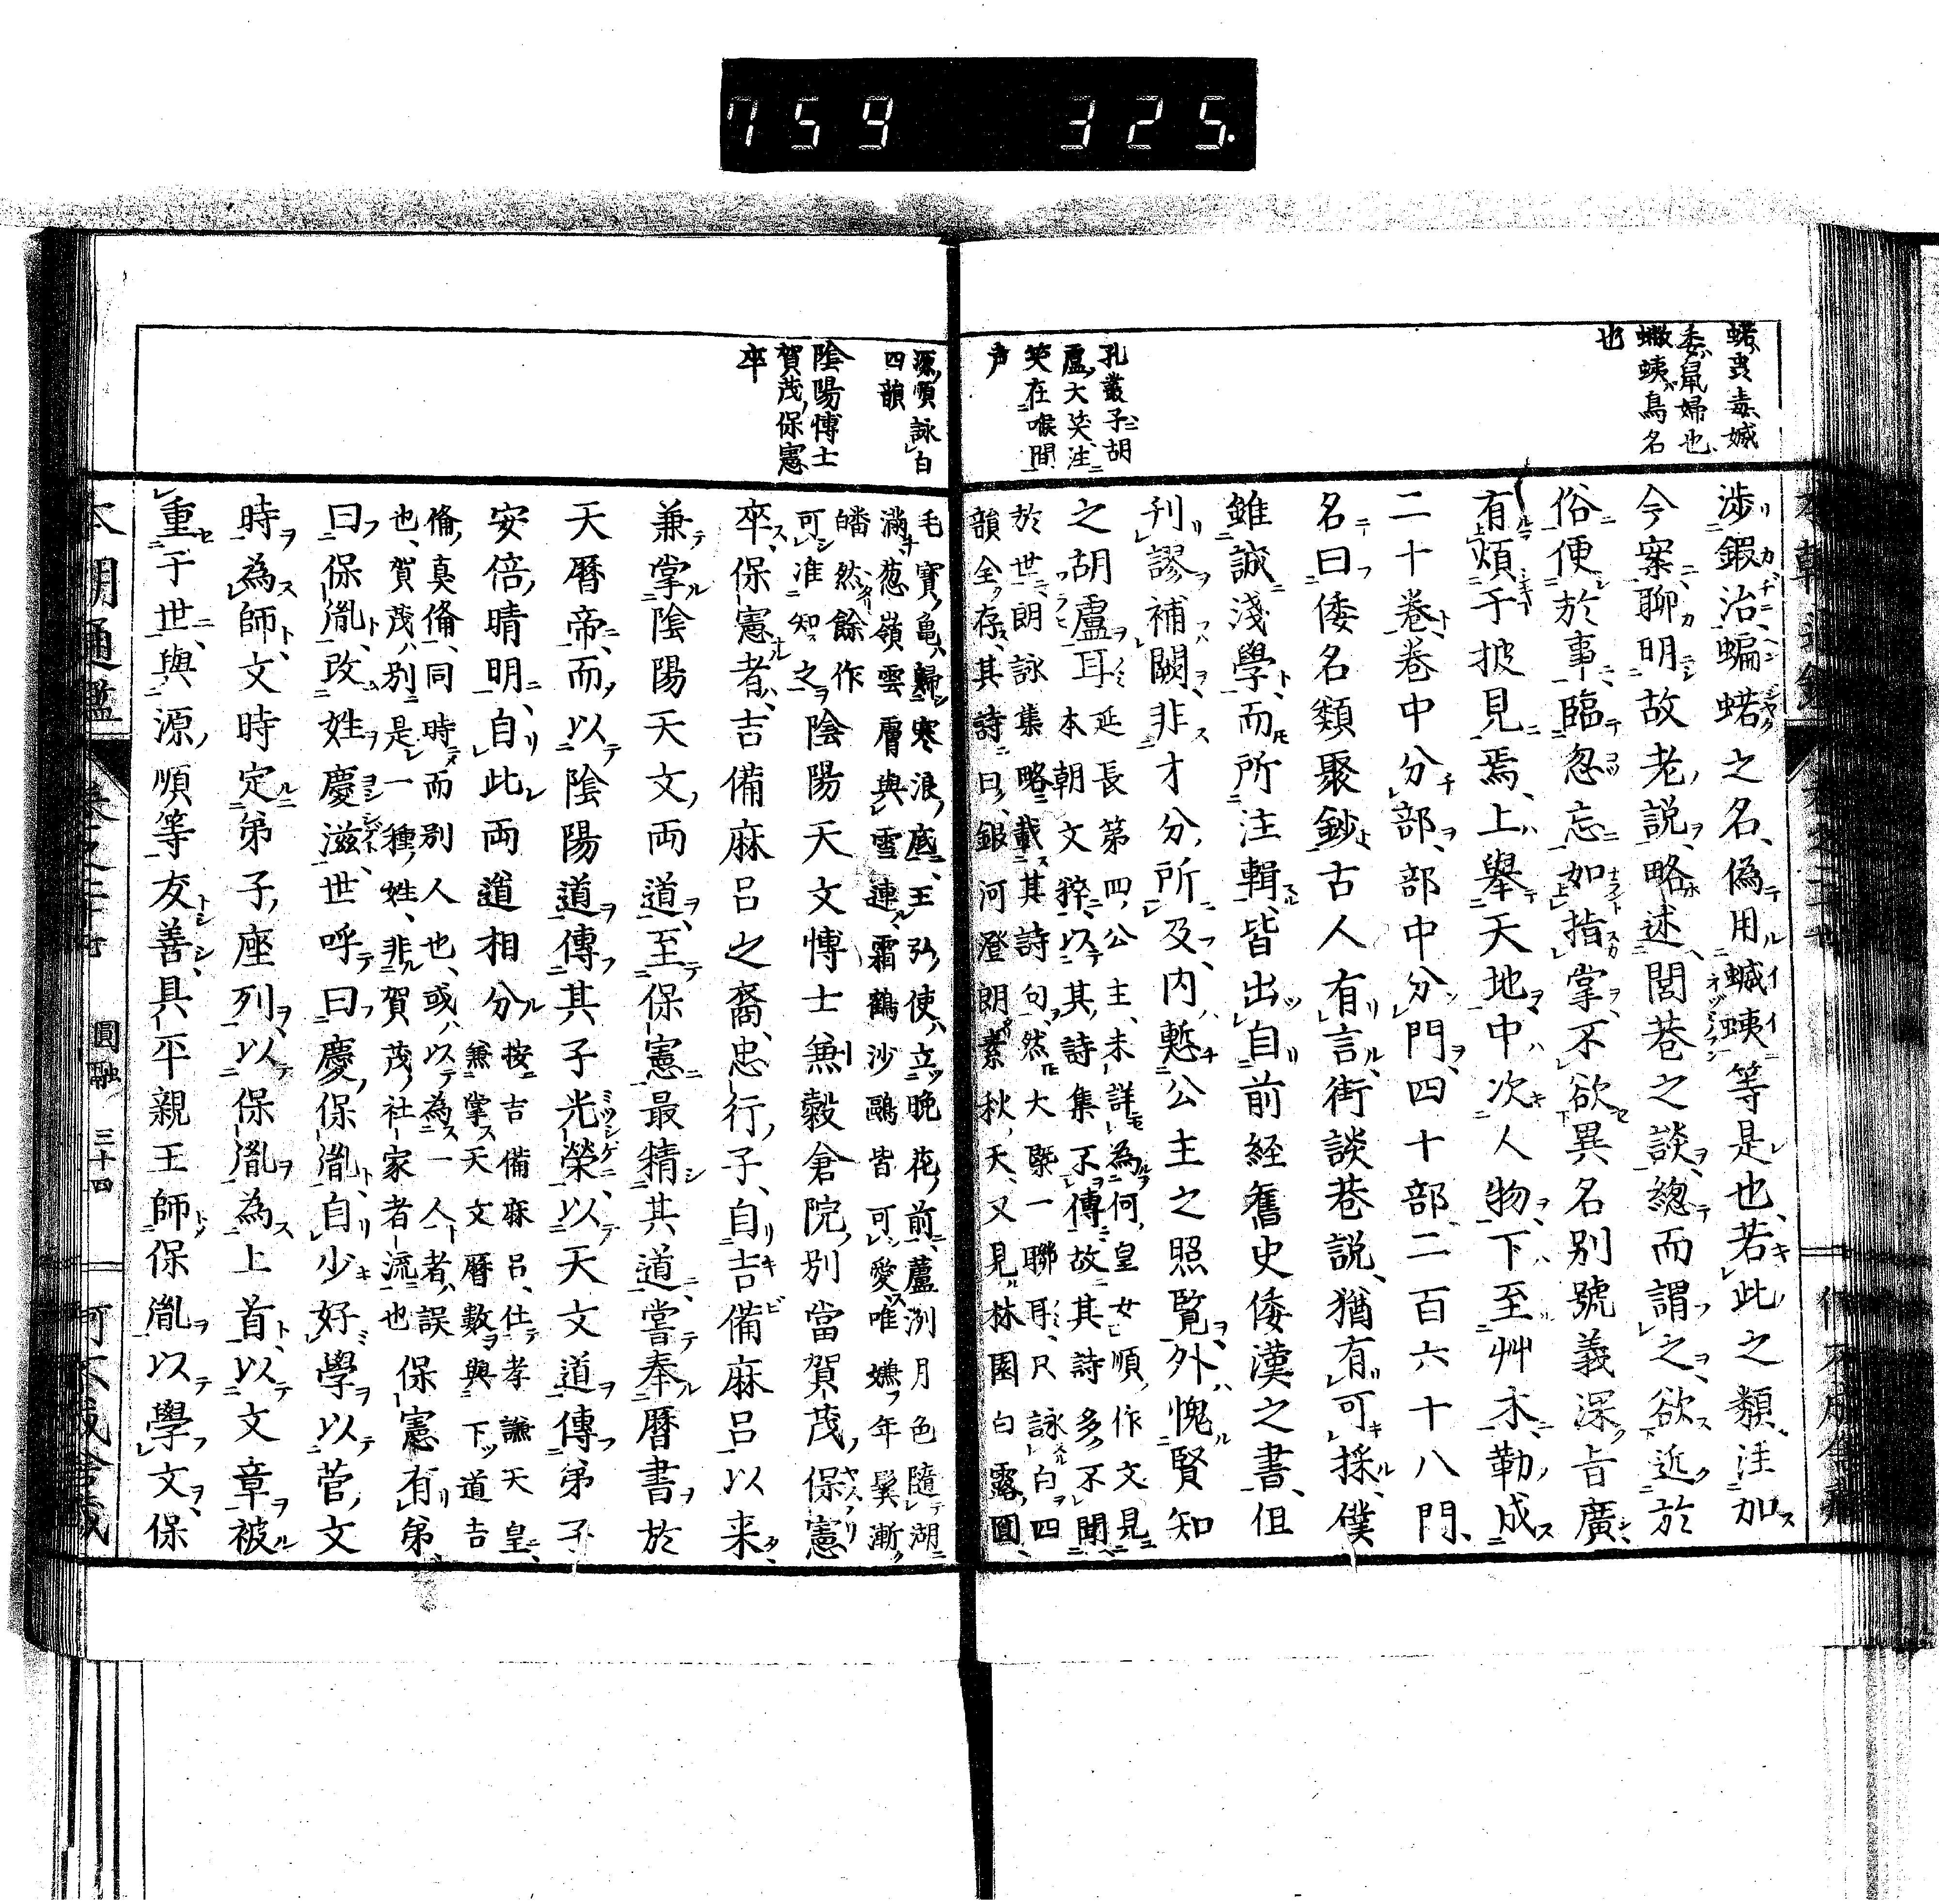 759 325.
蝫蛦毒蝛
委鼠婦也
蠮蛦鳥名
也
渉鍜治蝙蝫之名、偽用蝛蛦等是也、若此之類注加
今案聊明故老説、略述閭巷之談、緫而謂之、欲近於
俗便於事、臨忽忘如指掌、不欲異名別號義深旨廣、
有煩于披見焉、上舉天地、中次人物、下至艸木、勒成
二十巻、巻中分部、部中分門、四十部、二百六十八門、
名曰倭名類聚鈔、古人有言、街談巷説、猶有可採、僕
雖誠淺學、而所注輯、皆出自前経舊史倭漢之書、但
刋謬補闕、非才分所及、内慙公主之照覧、外愧賢知
之胡盧耳
延長第四公主未詳為何皇女順作文見
本朝文粹以其詩集不傳故其詩多不聞
於世朗詠集略載其詩句、然大槩一聯耳、尺詠白四
韻全存、其詩曰、銀河澄朗素秋天、又見林園白露圓、
孔叢子胡
盧大笑注
笑在喉間
声
毛寳亀歸寒浪底、王弘使立晩花前、蘆洲月色隨湖
滿、葱嶺雲層與雪連、霜鶴沙鷗皆可愛、唯嫌年鬂漸
皤然、餘作
可准知之
陰陽天文博士兼穀倉院別當賀茂保憲
卒、保憲者、吉備麻呂之裔、忠行子、自吉備麻呂以来
兼掌陰陽天文両道、至保憲最精其道、嘗奉暦書於
天暦帝、而以陰陽道傳其子光榮、以天文道傳弟子
安倍晴明、自此両道相分
按吉備麻呂、仕孝謙天皇、
兼掌天文暦數、與下道吉
備真備、同時而別人也、或以為一人者、誤
也、賀茂別是一種姓、非賀茂社家者流也
保憲有弟、
曰保胤、改姓慶滋、世呼曰慶保胤、自少好學、以菅文
時為師、文時定弟子座列、以保胤為上首、以文章被
重于世、與源順等友善、具平親王師保胤以學文、保
源順詠白
四韻
陰陽博士
賀茂保憲
卒
本朝通鑑
圓融 三十四